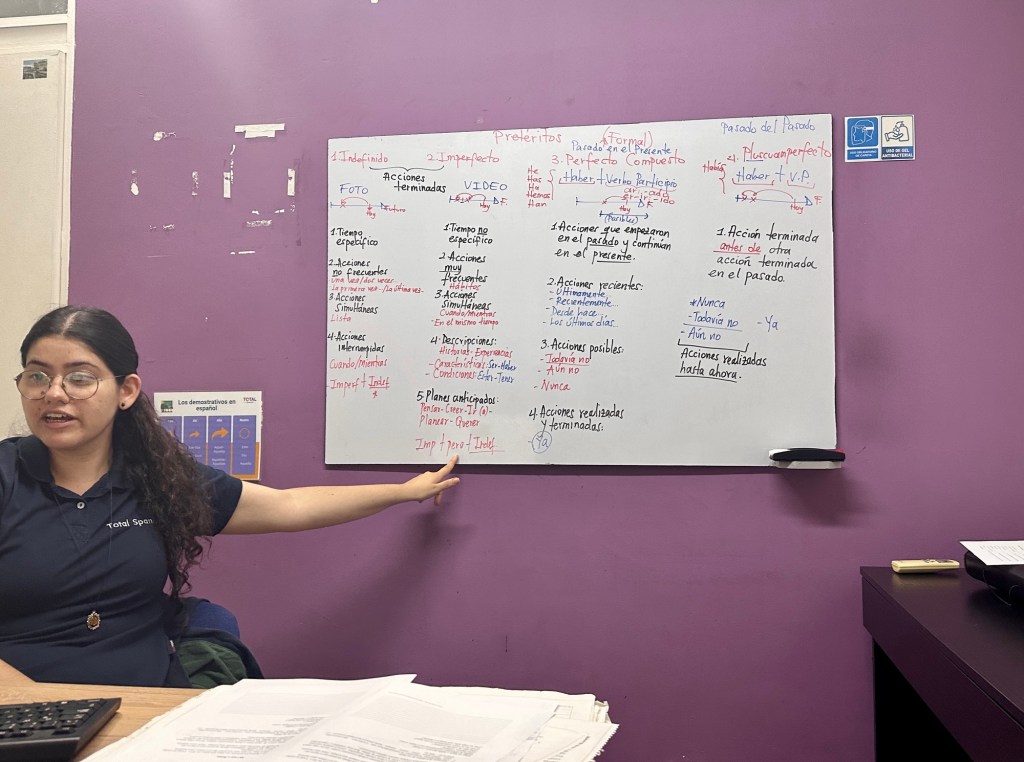 Pretéritos
(Formal)
1. Indefinido
2. Imperfecto
Acciones
terminadas
FOTO
Hoy
Futuro
1. Tiempo
específico
2. Acciones
no frecuentes
una vez/dos veces
La primera vez-/La última vez-
3. Acciones
Simultáneas
Lista
4. Acciones
interrumpidas
Cuando/Mientras
Imperf + Indef
VIDEO
Hoy
F.
1. Tiempo no
específico
2. Acciones
muy
frecuentes
Hábitos
3. Acciones
simultáneas
Cuando/Mientras
- En el mismo tiempo
4. Descripciones:
Historias - Experiencias
- Características: Ser-Haber
- Condiciones: Estar-Tener
5. Planes anticipados:
Pensar-Creer-Ir (a)-
Planear-Querer
Imp + pero + Indef
Pasado en el Presente
3. Perfecto Compuesto
He
Has
Ha
Hemos
Han
Haber + Verbo Participio
ar: -ado
er-ir: -ido
Hoy
F.
(Posibles)
1. Acciones que empezaron
en el pasado y continúan
en el presente.
2. Acciones recientes:
- Últimamente
- Recientemente
- Desde hace
- Los últimos días
3. Acciones posibles:
- Todavía no
- Aún no
- Nunca
4. Acciones realizadas
y terminadas:
- Ya
Pasado del Pasado
4. Pluscuamperfecto
Había
Haber + V.P.
Hoy
F
1. Acción terminada
antes de otra
acción terminada
en el pasado.
*Nunca
- Todavía no
- Ya
- Aún no
Acciones realizadas
hasta ahora.
USO DE GEL
ANTIBACTERIAL
Los demostrativos en
español
TOTAL
Total Span